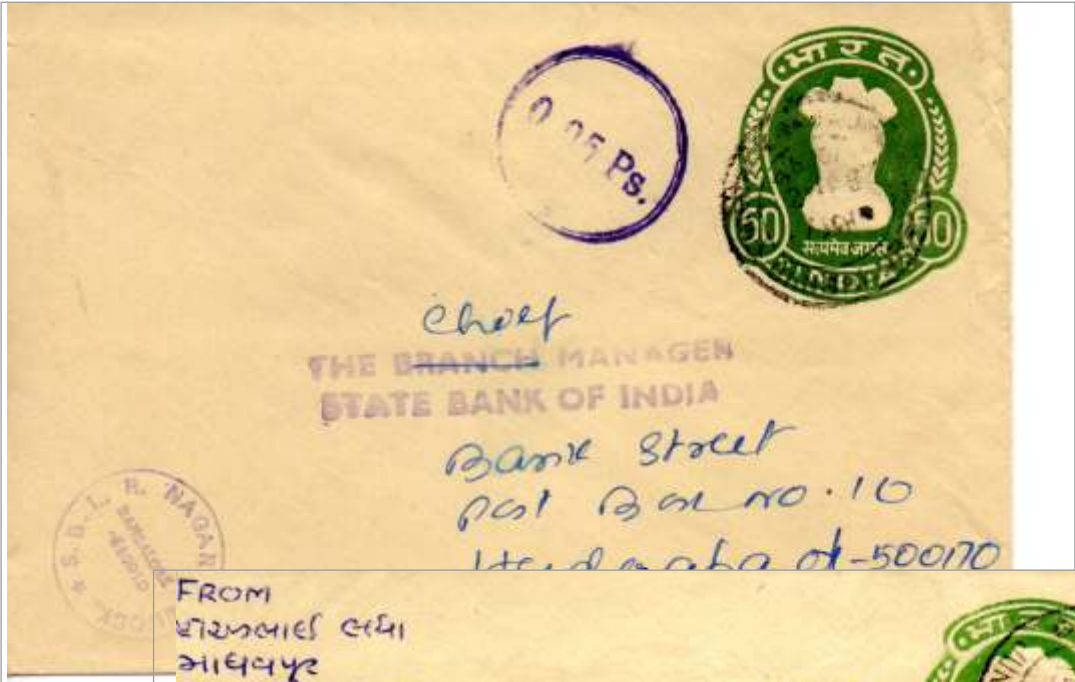 भारत
0 05 Ps.
50 50
सत्यमेव जयते
INDIA
Chief
THE BRANCH MANAGER
STATE BANK OF INDIA
Bank Street
Post Box no. 10
Hyderabad-500170
S. B. I. R. NAGAR
BANGALORE
FROM
માધવપુર